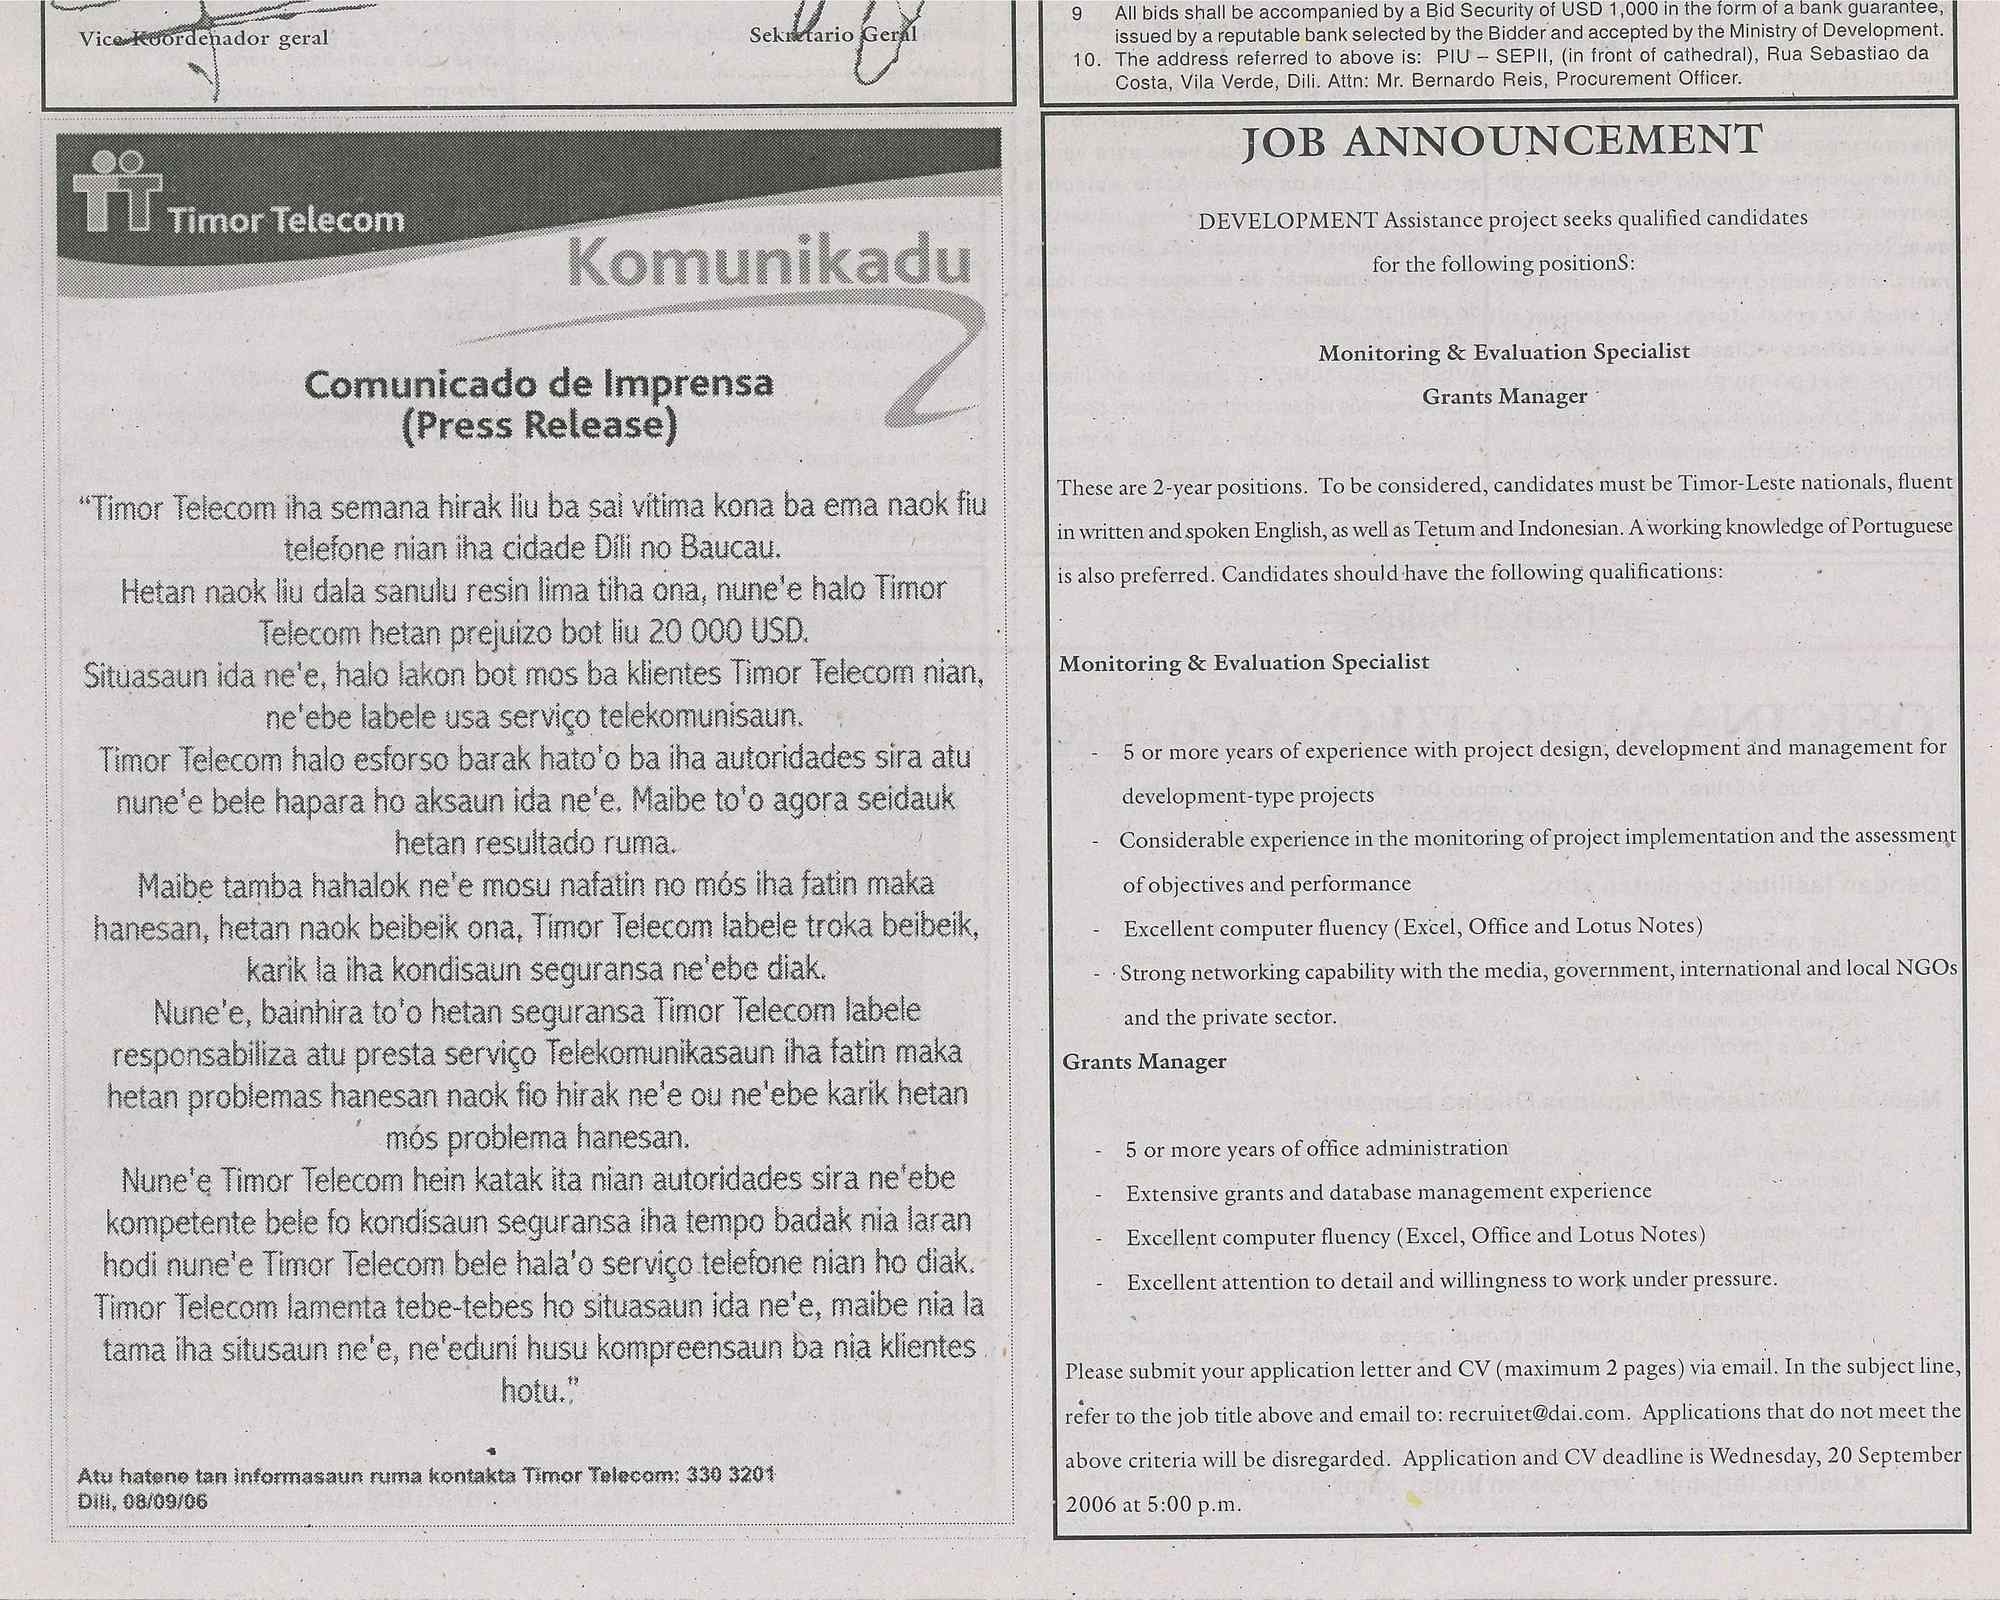 Vice-Koordenador geral
Sekretario Geral
Timor Telecom
Komunikadu
Comunicado de Imprensa
(Press Release)
“Timor Telecom iha semana hirak liu ba sai vítima kona ba ema naok fiu
telefone nian iha cidade Díli no Baucau.
Hetan naok liu dala sanulu resin lima tiha ona, nune'e halo Timor
Telecom hetan prejuizo bot liu 20 000 USD.
Situasaun ida ne'e, halo lakon bot mos ba klientes Timor Telecom nian,
ne'ebe labele usa serviço telekomunisaun.
Timor Telecom halo esforso barak hato'o ba iha autoridades sira atu
nune'e bele hapara ho aksaun ida ne'e. Maibe to'o agora seidauk
hetan resultado ruma.
Maibe tamba hahalok ne'e mosu nafatin no mós iha fatin maka
hanesan, hetan naok beibeik ona, Timor Telecom labele troka beibeik,
karik la iha kondisaun seguransa ne'ebe diak.
Nune'e, bainhira to'o hetan seguransa Timor Telecom labele
responsabiliza atu presta serviço Telekomunikasaun iha fatin maka
hetan problemas hanesan naok fio hirak ne'e ou ne'ebe karik hetan
mós problema hanesan.
Nune'e Timor Telecom hein katak ita nian autoridades sira ne'ebe
kompetente bele fo kondisaun seguransa iha tempo badak nia laran
hodi nune'e Timor Telecom bele hala'o serviço telefone nian ho diak.
Timor Telecom lamenta tebe-tebes ho situasaun ida ne'e, maibe nia la
tama iha situsaun ne'e, ne'eduni husu kompreensaun ba nia klientes
hotu.”
Atu hatene tan informasaun ruma kontakta Timor Telecom: 330 3201
Dili, 08/09/06
9 All bids shall be accompanied by a Bid Security of USD 1,000 in the form of a bank guarantee,
issued by a reputable bank selected by the Bidder and accepted by the Ministry of Development.
10. The address referred to above is: PIU – SEPII, (in front of cathedral), Rua Sebastiao da
Costa, Vila Verde, Dili. Attn: Mr. Bernardo Reis, Procurement Officer.
JOB ANNOUNCEMENT
DEVELOPMENT Assistance project seeks qualified candidates
for the following positionS:
Monitoring & Evaluation Specialist
Grants Manager
These are 2-year positions. To be considered, candidates must be Timor-Leste nationals, fluent
in written and spoken English, as well as Tetum and Indonesian. A working knowledge of Portuguese
is also preferred. Candidates should have the following qualifications:
Monitoring & Evaluation Specialist
- 5 or more years of experience with project design, development and management for
development-type projects
- Considerable experience in the monitoring of project implementation and the assessment
of objectives and performance
- Excellent computer fluency (Excel, Office and Lotus Notes)
- Strong networking capability with the media, government, international and local NGOs
and the private sector.
Grants Manager
- 5 or more years of office administration
- Extensive grants and database management experience
- Excellent computer fluency (Excel, Office and Lotus Notes)
- Excellent attention to detail and willingness to work under pressure.
Please submit your application letter and CV (maximum 2 pages) via email. In the subject line,
refer to the job title above and email to: recruitet@dai.com. Applications that do not meet the
above criteria will be disregarded. Application and CV deadline is Wednesday, 20 September
2006 at 5:00 p.m.